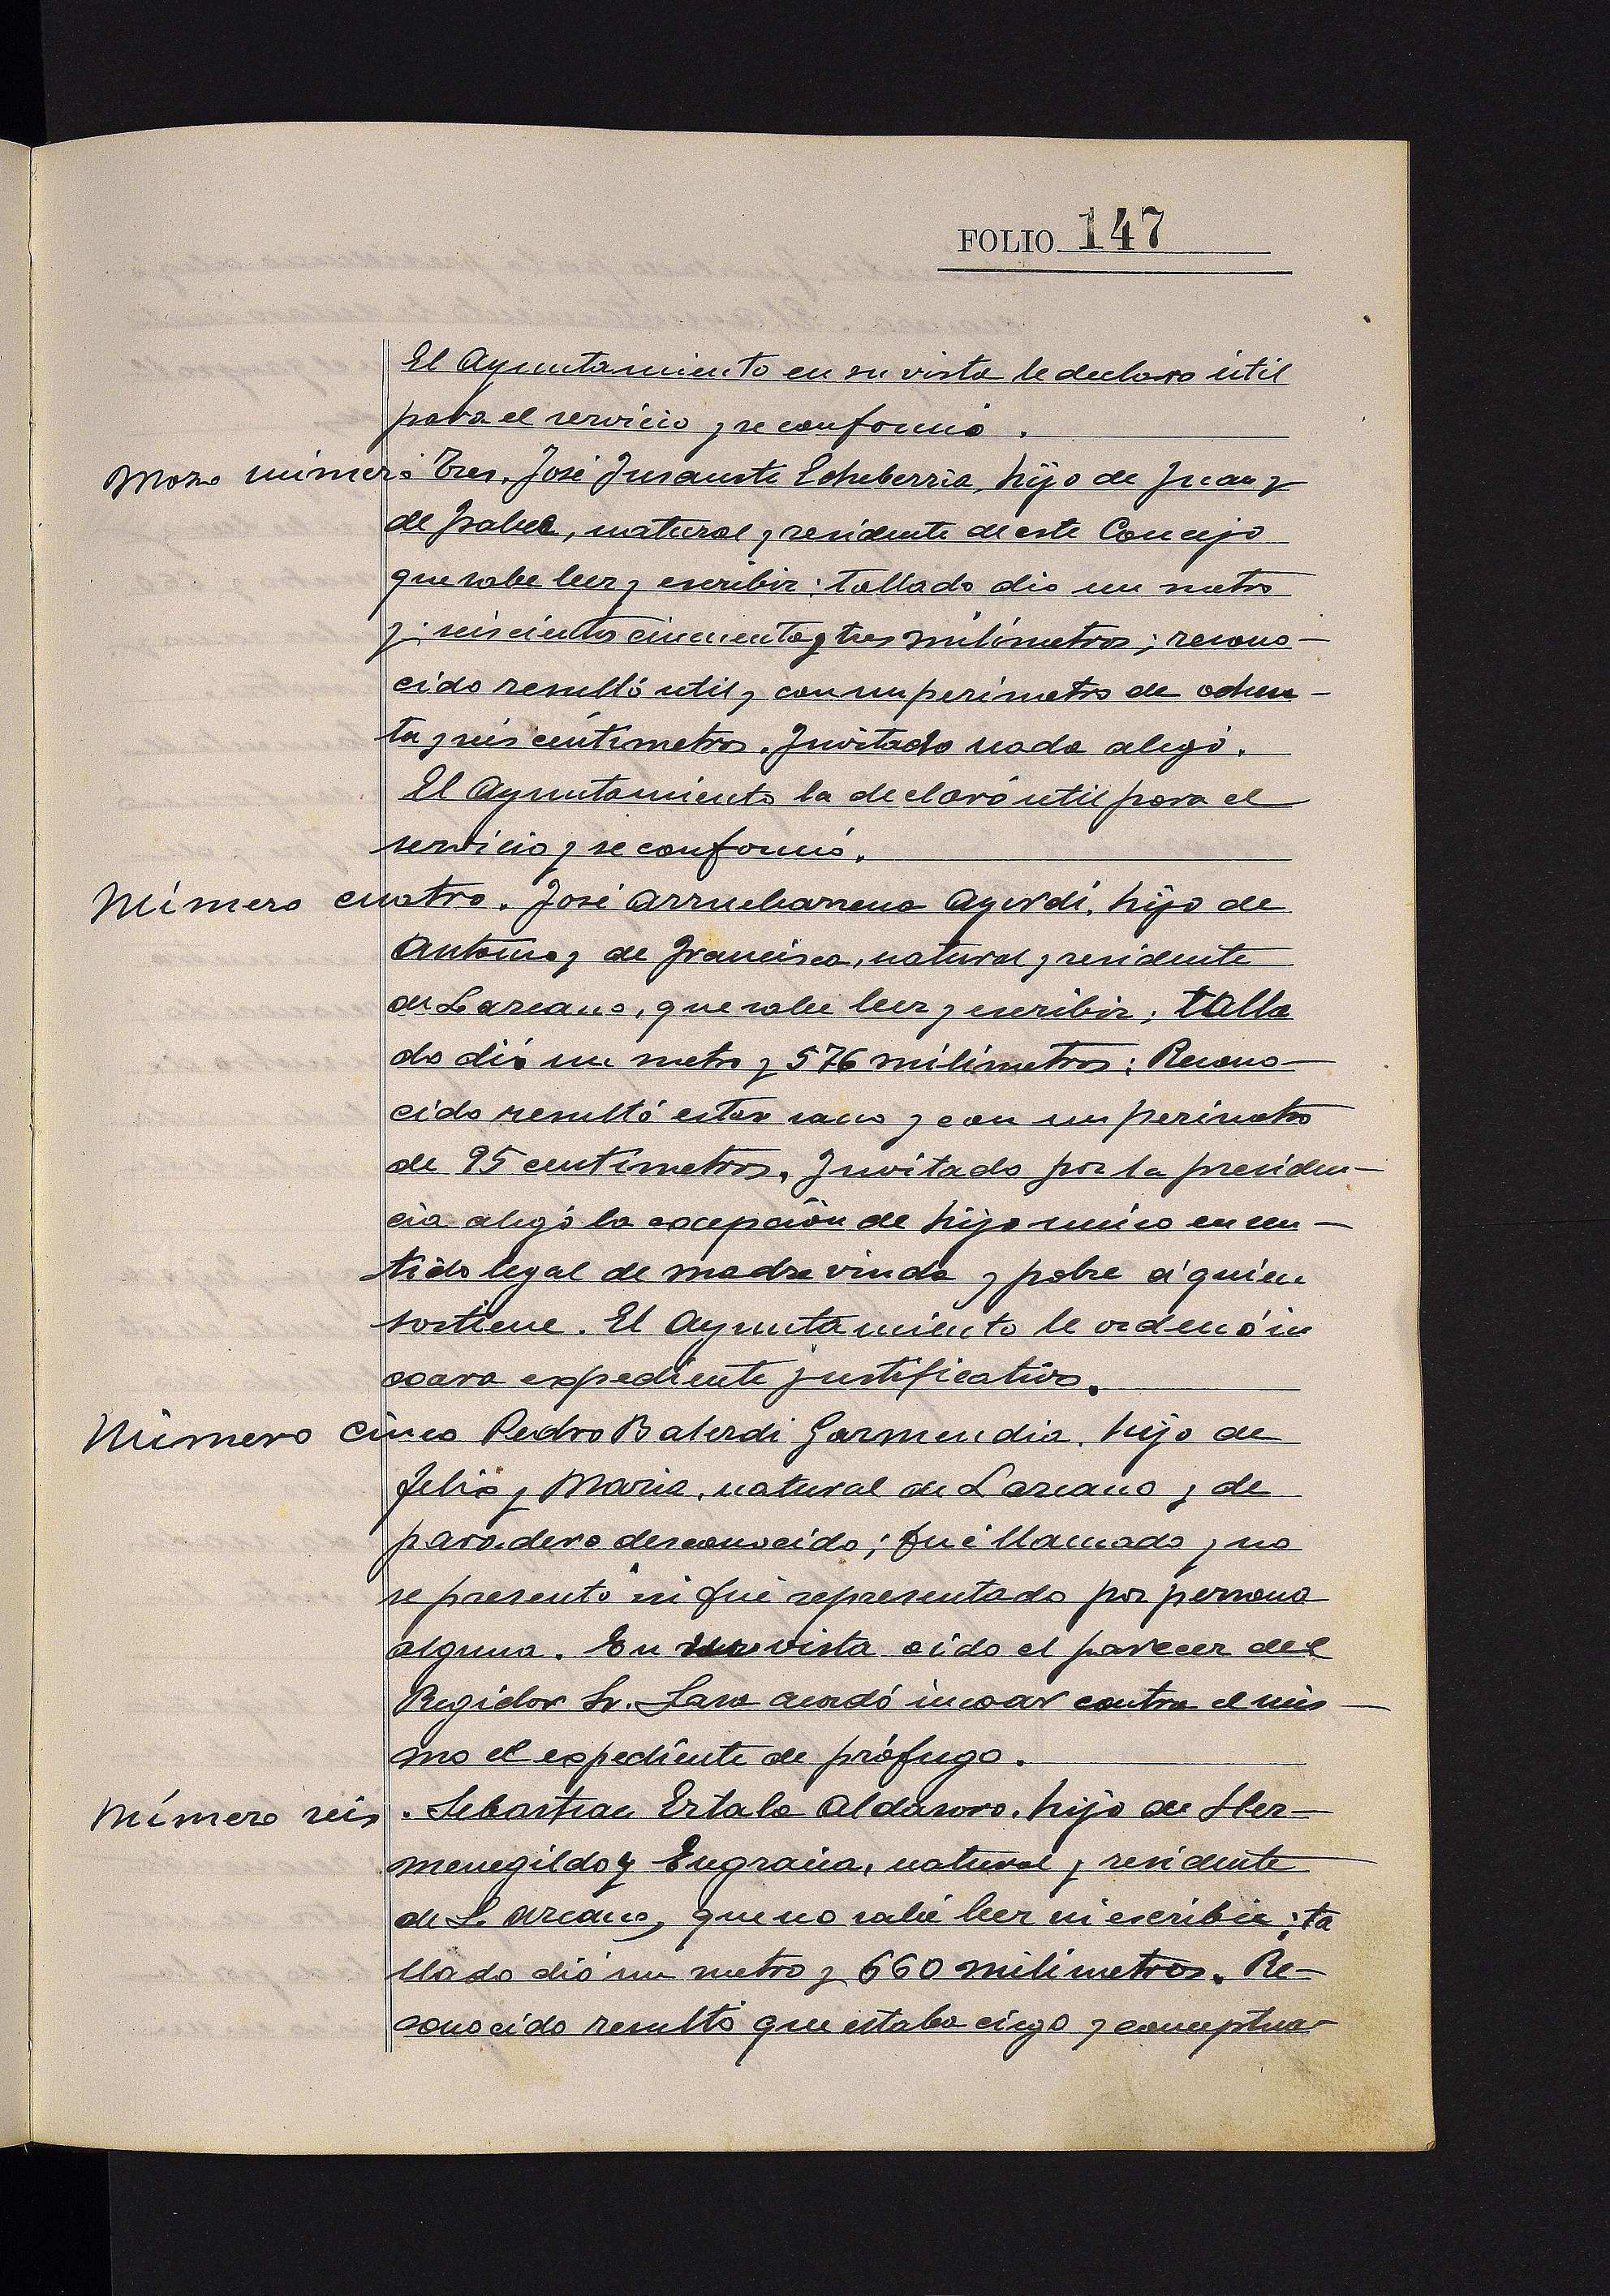 FOLIO 147
El Ayuntamiento en su vista le declaro útil
para el servicio y se conformó.
Mozo número Tres. José Insausti Echeberria, hijo de Juan y
de Isabel, natural y residente de este Concejo
que sabe leer y escribir: tallado dio un metro
y seiscientos cincuenta y tres milímetros; recono-
cido resultó util y con un perímetro de ochen-
ta y seis centímetros. Invitado nada alegó.
El Ayuntamiento la declaró util para el
servicio y se conformó.
Número cuatro. José Arruebarrena Ayerdi, hijo de
Antonio y de Francisca, natural y residente
de Lazcano, que sabe leer y escribir; talla
do dió un metro y 576 milímetros: Recono-
cido resultó estar sano y con un perimetro
de 95 centímetros. Invitado por la presiden-
cia alegó la excepción de hijo unico en sen-
tido legal de madre viuda y pobre á quien
sostiene. El Ayuntamiento le ordenó in
coara expediente justificativo.
Número cinco Pedro Balerdi Garmendia, hijo de
Felix y Maria, natural de Lazcano y de
paradero desconocido; fué llamado y no
se presentó ni fué representado por persona
alguna. En vista oido el parecer del
Regidor Sr. Lasa acordó incoar contra el mis-
mo el expediente de prófugo.
Número seis. Sebastian Estala Aldasoro, hijo de Her-
menegildo y Engracia, natural y residente
de Lazcano, que no sabe leer ni escribir; ta
llado dió un metro y 660 milimetros. Re-
conocido resultó que estaba ciego y conceptua-